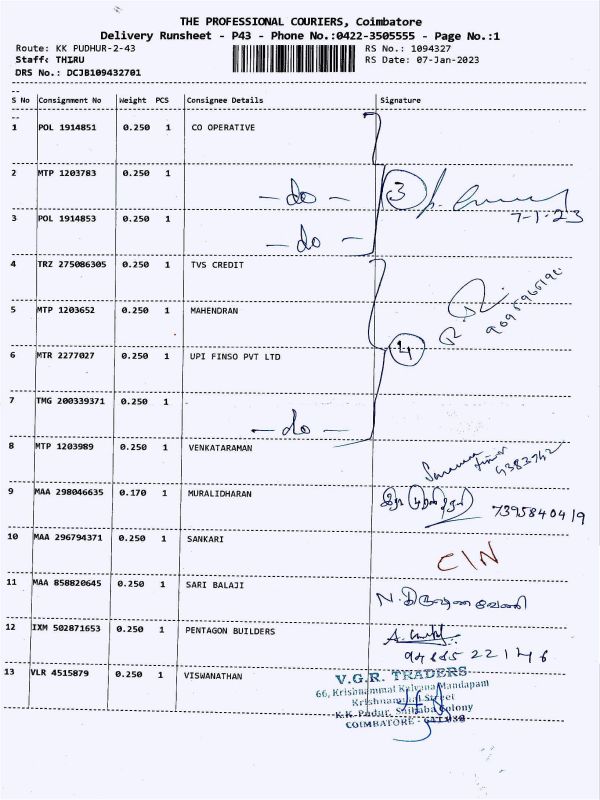 THE PROFESSIONAL COURIERS, Coimbatore
Delivery Runsheet - P43 - Phone No.:0422-3505555 - Page No.:1
Route: KK PUDHUR-2-43 RS No.: 1094327
Staff: THIRU RS Date: 07-Jan-2023
DRS No.: DCJB109432701
S No Consignment No Weight PCS Consignee Details Signature
1 POL 1914851 0.250 1 CO OPERATIVE
2 MTP 1203783 0.250 1 - do - 3
7-1-23
3 POL 1914853 0.250 1 - do -
4 TRZ 275086305 0.250 1 TVS CREDIT
5 MTP 1203652 0.250 1 MAHENDRAN
6 MTR 2277027 0.250 1 UPI FINSO PVT LTD 4
7 TMG 200339371 0.250 1 - do -
8 MTP 1203989 0.250 1 VENKATARAMAN
9 MAA 298046635 0.170 1 MURALIDHARAN 7395840419
10 MAA 296794371 0.250 1 SANKARI CIN
11 MAA 858820645 0.250 1 SARI BALAJI
12 IXM 502871653 0.250 1 PENTAGON BUILDERS
13 VLR 4515879 0.250 1 VISWANATHAN
V.G.R. TRADERS
66, Krishnammal Kalyana Mandapam
Krishnammal Street
K.K. Pudur, Saibaba Colony
COIMBATORE